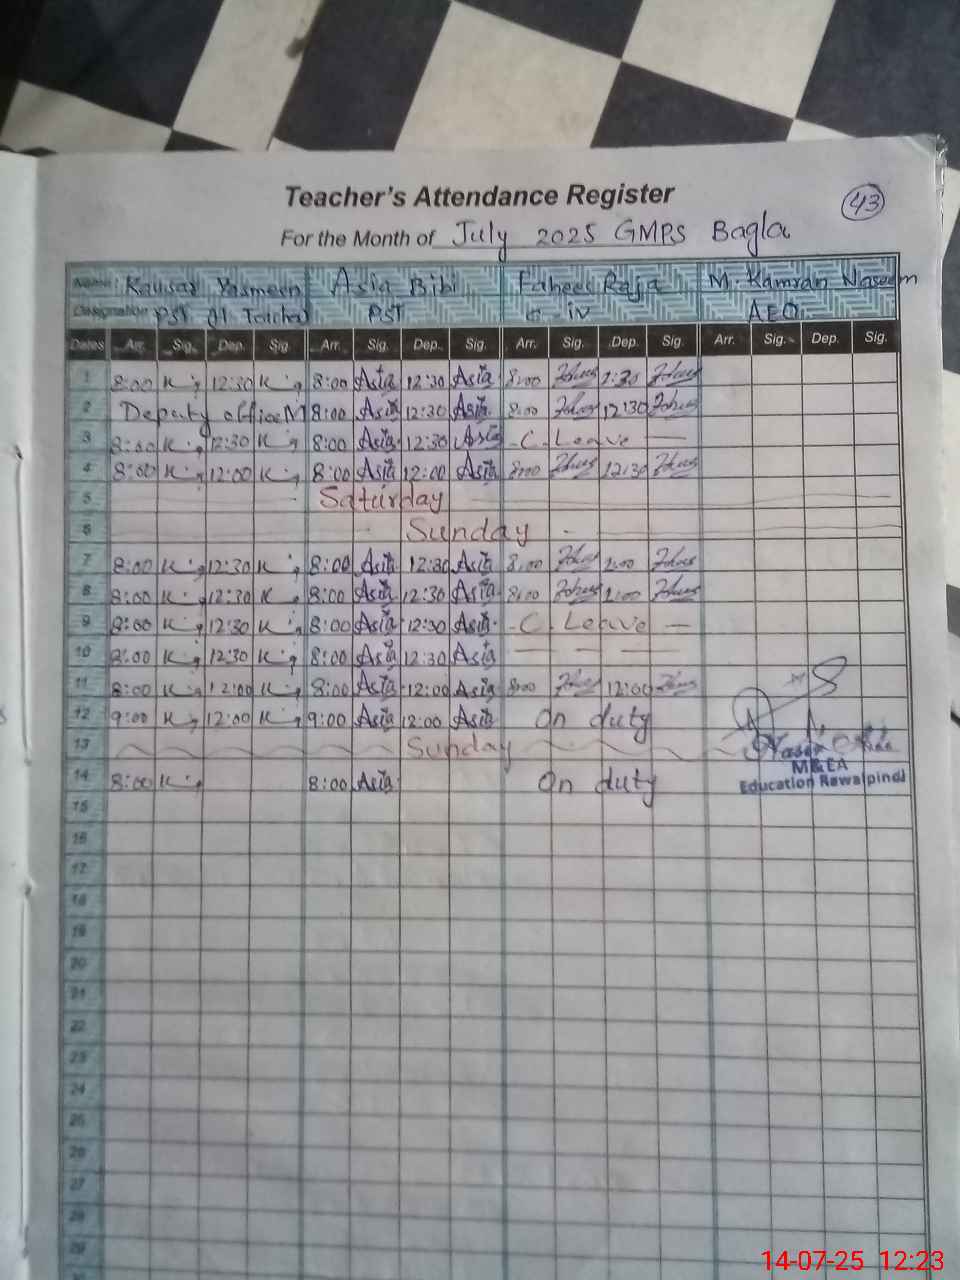 Teacher's Attendance Register
43
For the Month of July 2025 GMPS Bagla
Name: Kausar Yasmeen Asia Bibi Faheel Raja M. Kamran Naseem
Designation PST PST C-iv AEO
Dates Arr. Sig. Dep. Sig. Arr. Sig. Dep. Sig. Arr. Sig. Dep. Sig. Arr. Sig. Dep. Sig.
1 8:00 K 12:30 K 8:00 Asia 12:30 Asia 8:00
2 Deputy office M 8:00 Asia 12:30 Asia 8:00 12:30
3 8:00 K 12:30 K 8:00 Asia 12:30 Asia C. Leave
4 8:00 K 12:00 K 8:00 Asia 12:00 Asia 8:00 12:30
5 Saturday
6 Sunday
7 8:00 K 12:30 K 8:00 Asia 12:30 Asia 8:00
8 8:00 K 12:30 K 8:00 Asia 12:30 Asia 8:00
9 8:00 K 12:30 K 8:00 Asia 12:30 Asia C. Leave
10 8:00 K 12:30 K 8:00 Asia 12:30 Asia
11 8:00 K 12:00 K 8:00 Asia 12:00 Asia 8:00 12:00
12 9:00 K 12:00 K 9:00 Asia 12:00 Asia On duty
13 Sunday
14 8:00 K 8:00 Asia On duty
M&EA
Education Rawalpindi
15
16
17
18
19
20
21
22
23
24
25
26
27
28
29
14-07-25 12:23